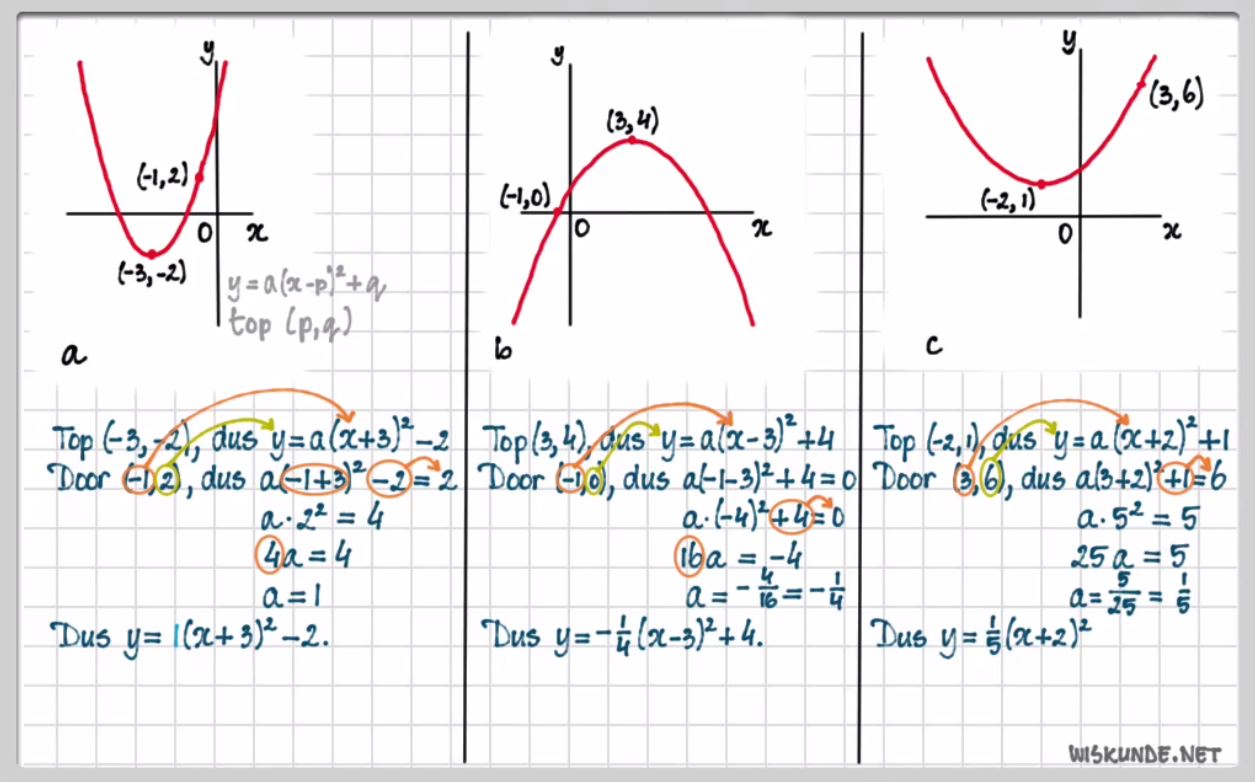 y
(-1,2)
0 x
(-3,-2)
y=a(x-p)²+q
top (p,q)
a
Top (-3,-2), dus y=a(x+3)²-2
Door (-1,2), dus a(-1+3)²-2=2
a·2²=4
4a=4
a=1
Dus y=1(x+3)²-2.
y
(3,4)
(-1,0)
0 x
b
Top(3,4), dus y=a(x-3)²+4
Door (-1,0), dus a(-1-3)²+4=0
a·(-4)²+4=0
16a=-4
a=-4/16=-1/4
Dus y=-1/4(x-3)²+4.
y
(3,6)
(-2,1)
0 x
c
Top (-2,1), dus y=a(x+2)²+1
Door (3,6), dus a(3+2)²+1=6
a·5²=5
25a=5
a=5/25=1/5
Dus y=1/5(x+2)²
WISKUNDE.NET